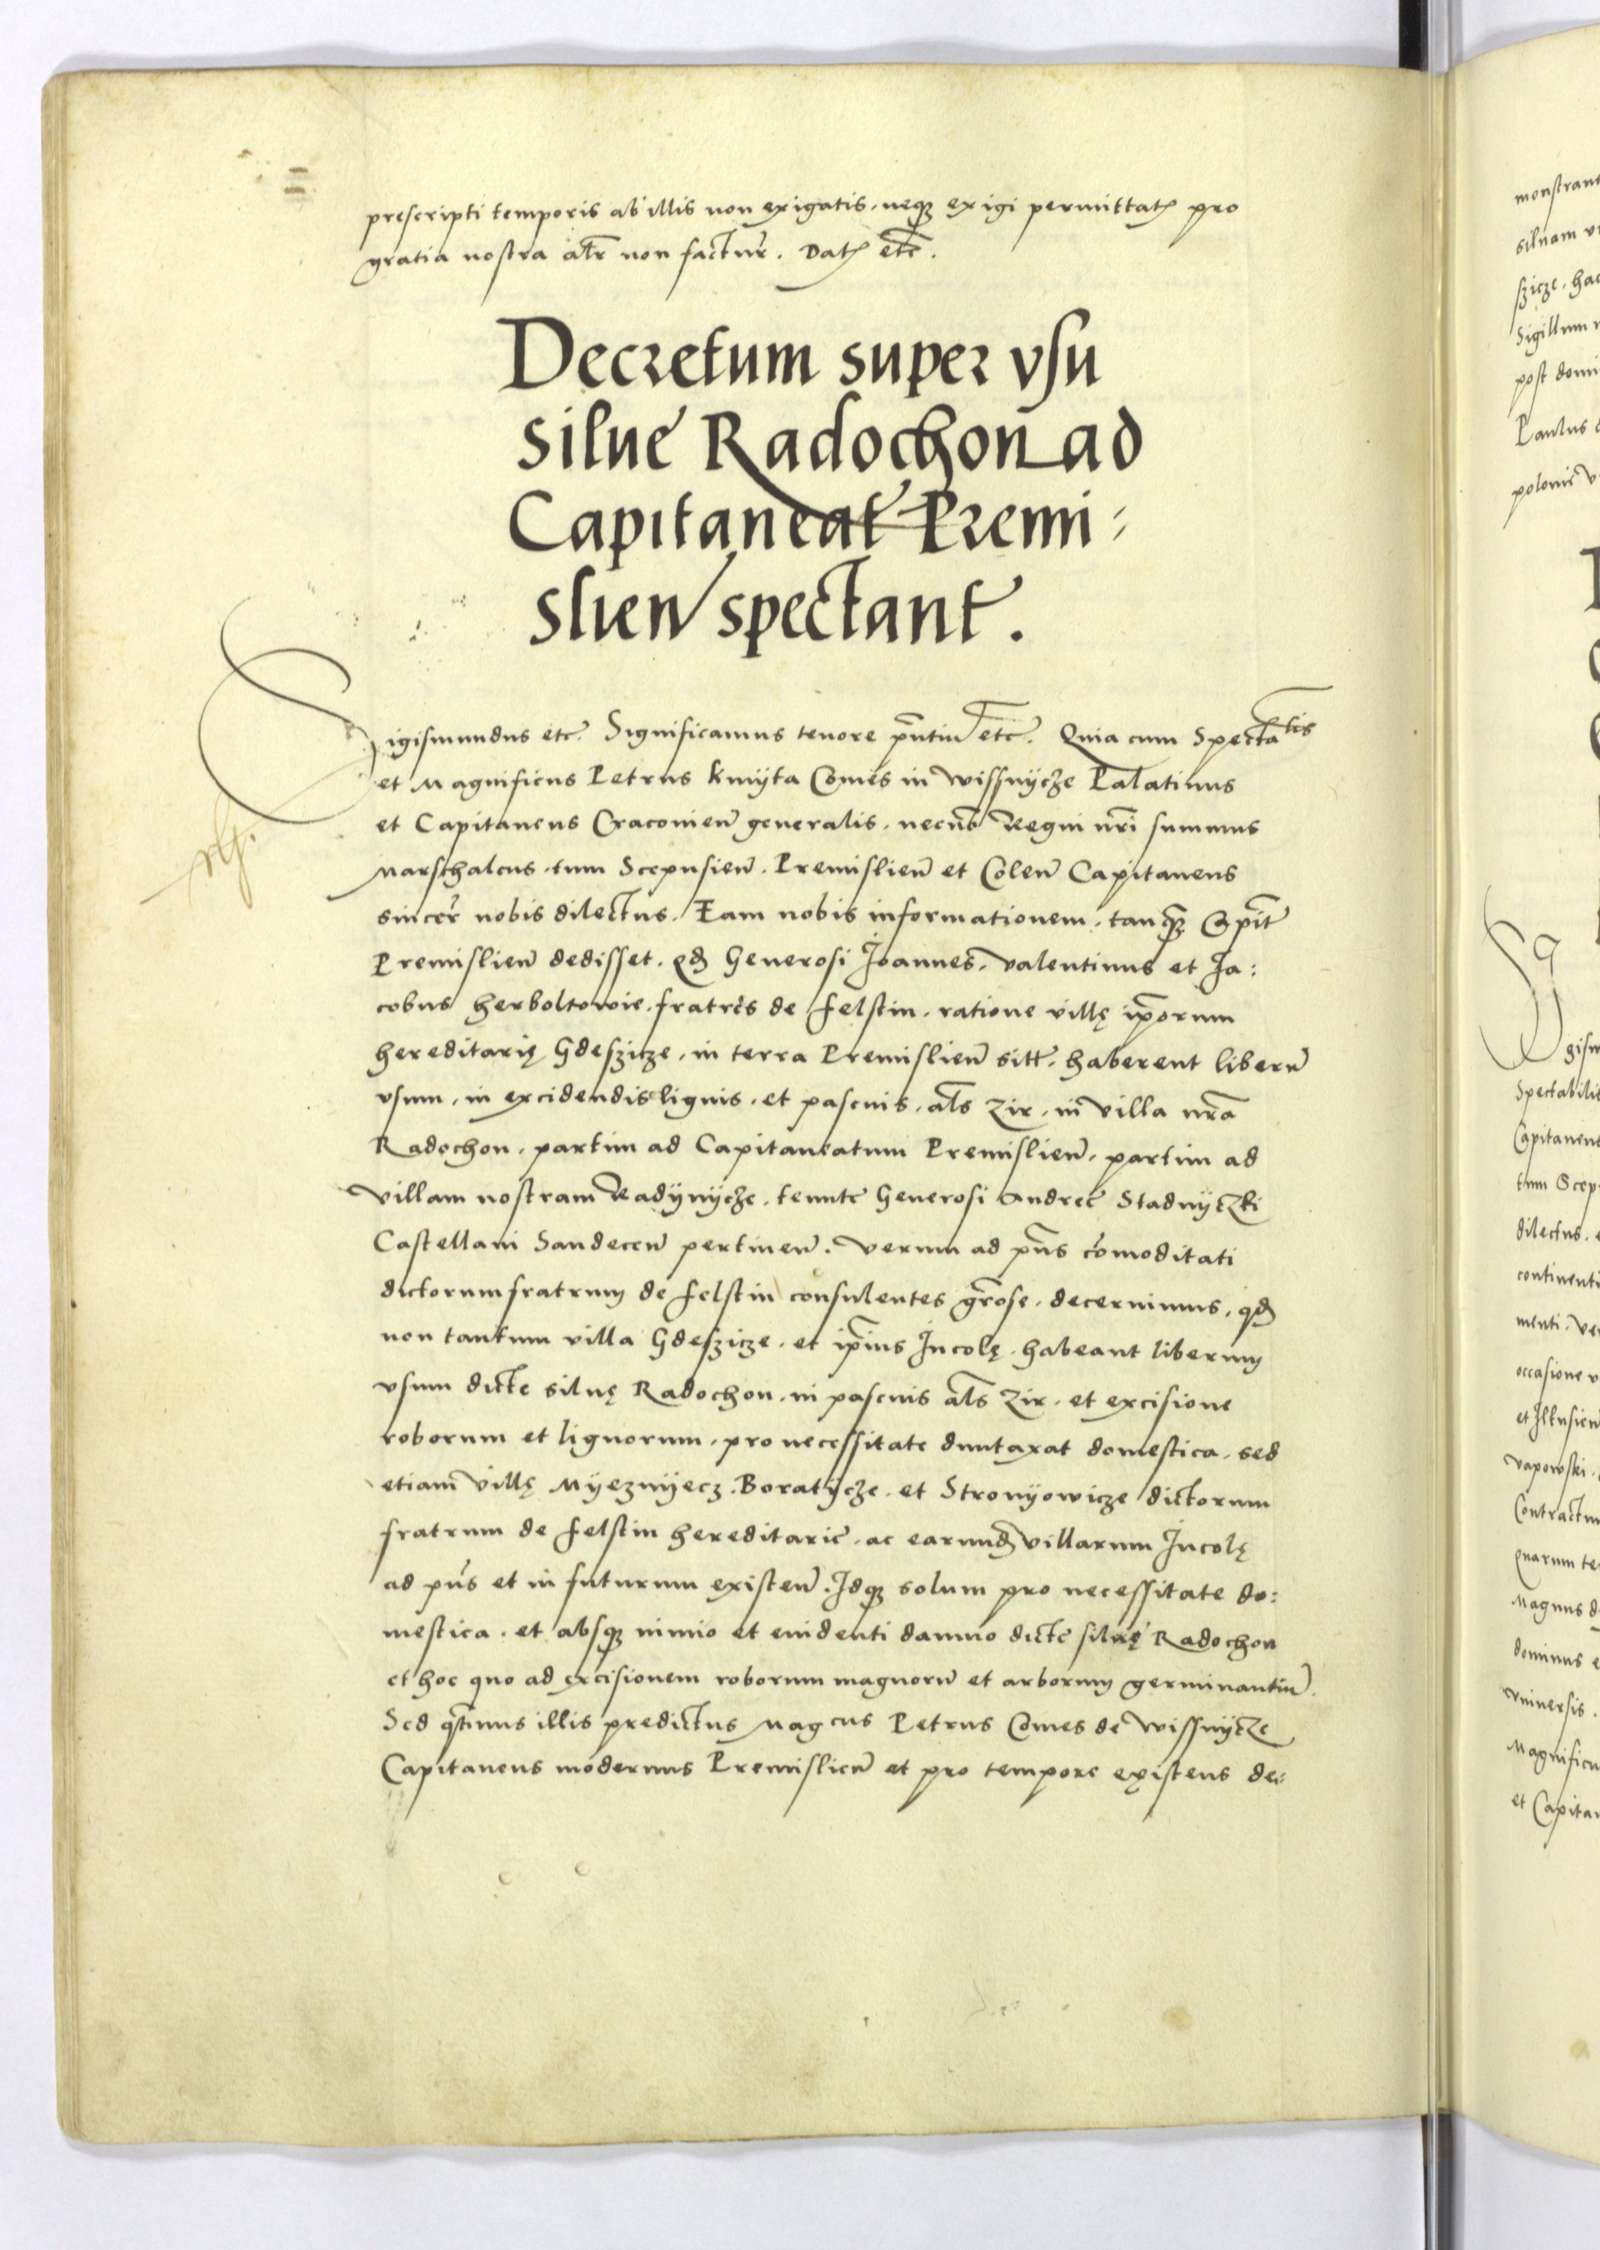 prescripti temporis ab illis non exigatis, neqꝫ exigi permittatꝭ pro
gratia nostra alr̃ non facturˀ. Datꝭ etc̃.
Decretum super vsu
silue Radochon ad
Capitaneat̃ Premi⸗
slien̄ spectant̃.
Sigismundus etc. Significamus tenore pñtiũ etc̃. Quia cum Spectalis
et Magnificus Petrus kmyta Comes in Wissnycze Palatinus
et Capitaneus Cracovien̄ generalis, necnõ Regni nrĩ summus
Marschalcus, tum Scepusien̄, Premislien̄ et Colen̄ Capitaneus
sincerˀ nobis dilectus. Eam nobis informationem, tanqꝫ Capit̃
Premislien̄ dedisset, qđ Generosi Joannes, Valentinus et Ja:
cobus herboltowie, fratres de felstin, ratione villę ip̃orum
hereditarię Gdeszicze, in terra Premislien̄ sitẽ, haberent liberũ
vsum, in excidendis lignis, et pascuis, al̃s zir, in villa nrã
Radochon, partim ad Capitaneatum Premislien̄, partim ad
villam nostram Radynycze, tenutẽ Generosi Andreẽ Stadnytzki
Castellani Sandecen̄ pertinen̄. Verum ad pñs cõmoditati
dictorum fratrum de felstin consulentes grãose, decernimus, qđ
non tantum villa Gdeszicze, et ip̃ius Incolę, habeant liberum
vsum dictẽ siluę Radochon, in pascuis al̃s zir, et excisione
roborum et lignorum, pro necessitate duntaxat domestica, sed
etiam villę Myeznyecz, Boratycze, et Stronyowicze dictorum
fratrum de felstin hereditariẽ, ac earundꝫ villarum Incolę
ad pñs et in futurum existen̄. Idqꝫ solum pro necessitate do:
mestica, et absqꝫ nimio et euidenti damno dictẽ siluę Radochon
et hoc quo ad excisionem roborum magnorũ et arborum germinantiũ.
Sed q̃tinus illis predictus Magcus Petrus Comes de Wissnytze
Capitaneus modernus Premislien̄ et pro tempore existens de:
monstrant
siluam
szicze, hac
Sigillum
post domi
Paulus
polonie
Spectabilis
Capitaneus
tum Scep
dilectus,
continenti
menti, ve
occasione
vapowski
Contractum
Quarum te
Magnus d
dominus
vniuersis
Magnificu
et Capita